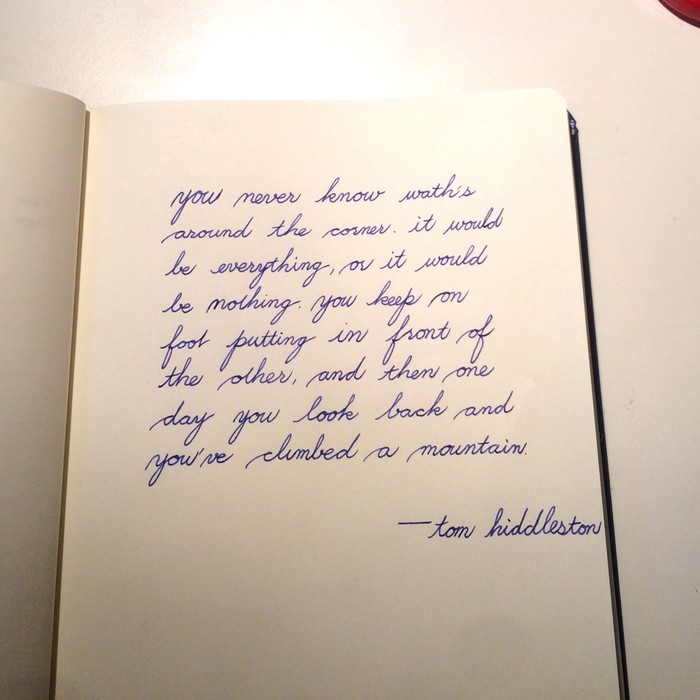 you never know wath's
around the corner. it would
be everything, or it would
be nothing. you keep on
foot putting in front of
the other, and then one
day you look back and
you've climbed a mountain.
—tom hiddleston